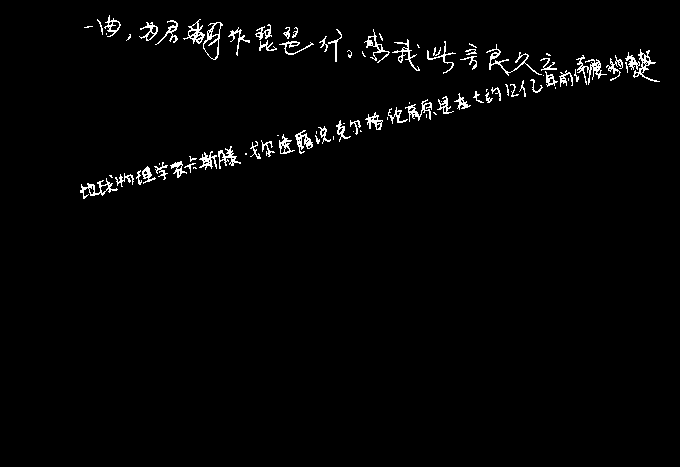 一曲，为君翻作琵琶行。感我此言良久立
地球物理学家卡斯滕·戈尔迳题说,克尔格伦高原是在大约1.2亿年前